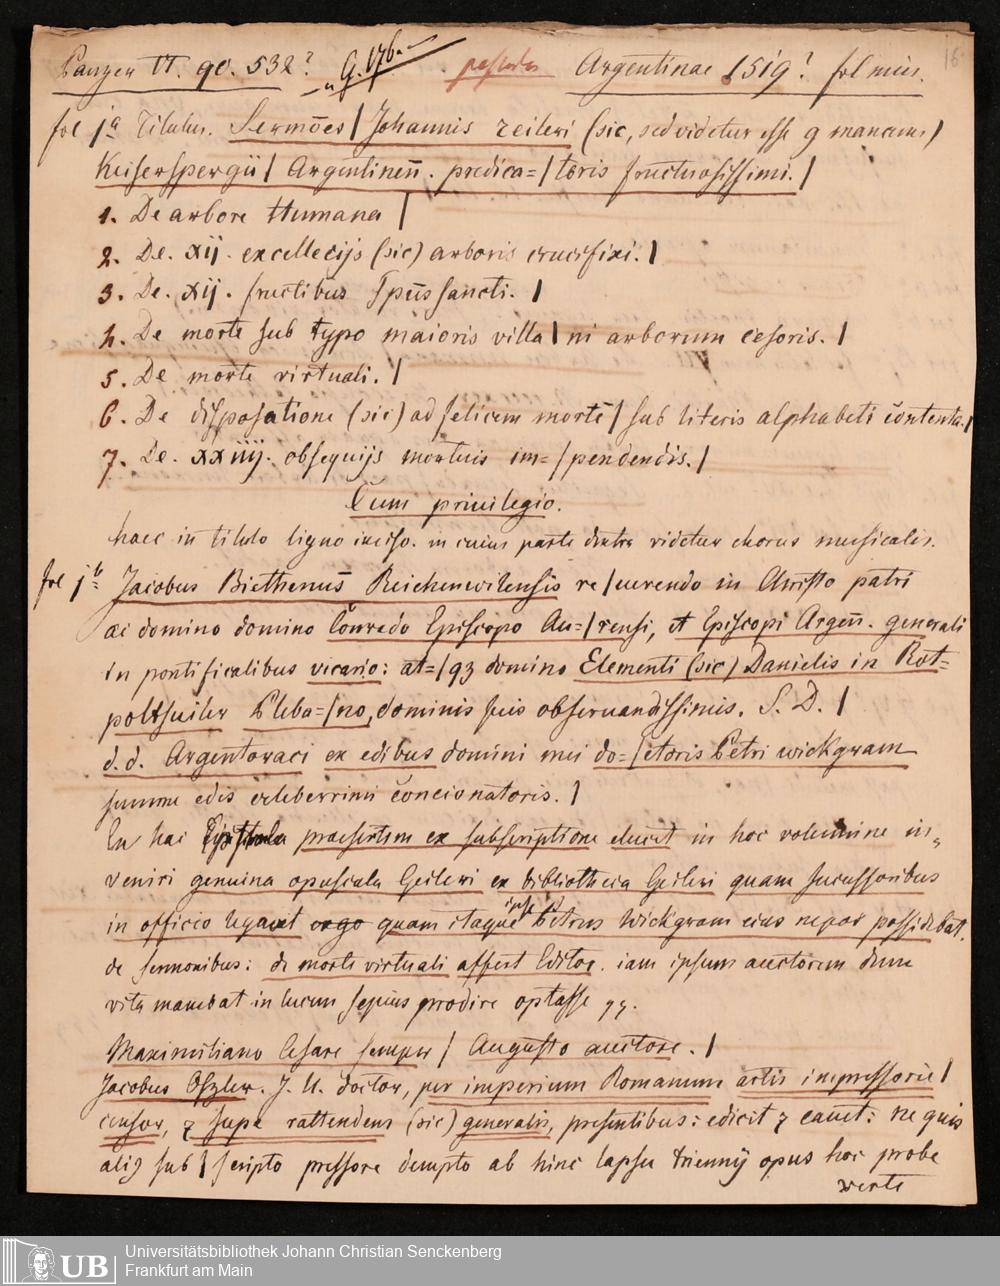 Panzer VI. 90. 532? G. 176. Argentinae 1519? fol min. 16
fol 1a Titulus. Sermões / Johannis zeileri (sic, sed videtur esse g mancum)
Keiserspergii / Argentinen̄. predica=/toris fructuosissimi./
1. De arbore Humana /
2. De. xij. excellecijs (sic) arboris crucifixi. /
3. De. xij. fructibus spūs sancti. /
4. De morte sub typo maioris villa / ni arborum cesoris. /
5. De morte virtuali. /
6. De disposatione (sic) ad felicem mortē / sub literis alphabeti contenta. /
7. De. xxiiij. obsequijs mortuis im=/pendendis. /
Cum priuilegio.
haec in titulo ligno inciso. in cuius parte dextra videtur chorus musicalis.
fol 1b Jacobus Biethenus Reichenwilensis re/uerendo in Christo patri
ac domino domino Conrado Episcopo Au=/rensi, et Episcopi Argen̄. generali
in pontificalibus vicario: at=/q3 domino Elementi (sic) Danielis in Rot=
poltsuiler Pleba=/no, dominis suis obseruandissimis. S. D. /
d. d. Argentoraci ex edibus domini mei do=/ctoris Petri wickgram
summe edis celeberrimi concionatoris. /
En hac Epistola praesertim ex subscriptione elucet in hoc volumine in=
veniri genuina opuscula Geileri ex bibliotheca Geileri quam successoribus
in officio legavit ergo quam itaque ipse Petrus Wickgram eius nepos possidebat.
de sermonibus: de morte virtuali affert Editor. iam ipsum auctorem dum
vita manebat in lucem sepius prodire optasse
Maximiliano Cesare semper / Augusto auctore. /
Jacobus Oszler. J. U. doctor, per imperium Romanum artis impressorie /
censor, z supe rattendens (sic) generalis, presentibus: edicit z cauet: ne quis
ali9 sub / scripto pressore dempto ab hinc lapsu triennij opus hoc probe
verte
Universitätsbibliothek Johann Christian Senckenberg
Frankfurt am Main
UB